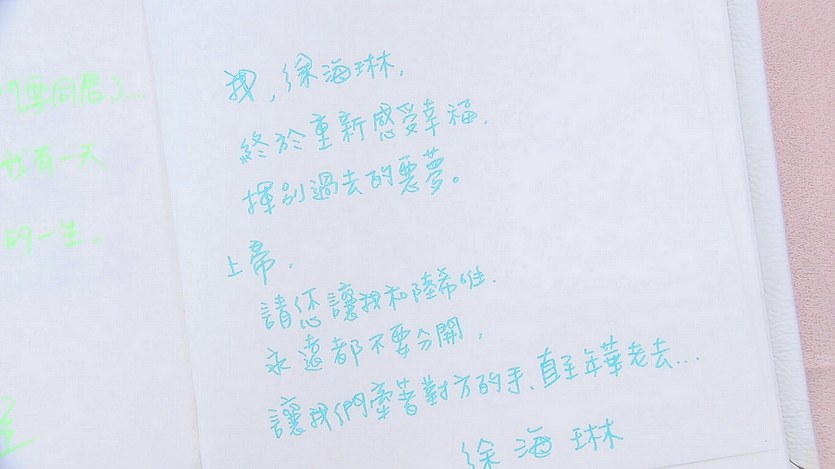 要同居了...
有一天
的一生。
我,徐海琳,
終於重新感受幸福,
揮別過去的惡夢。
上帝,
請您讓我和陸希唯,
永遠都不要分開,
讓我們牽著對方的手、直至年華老去...
徐海琳